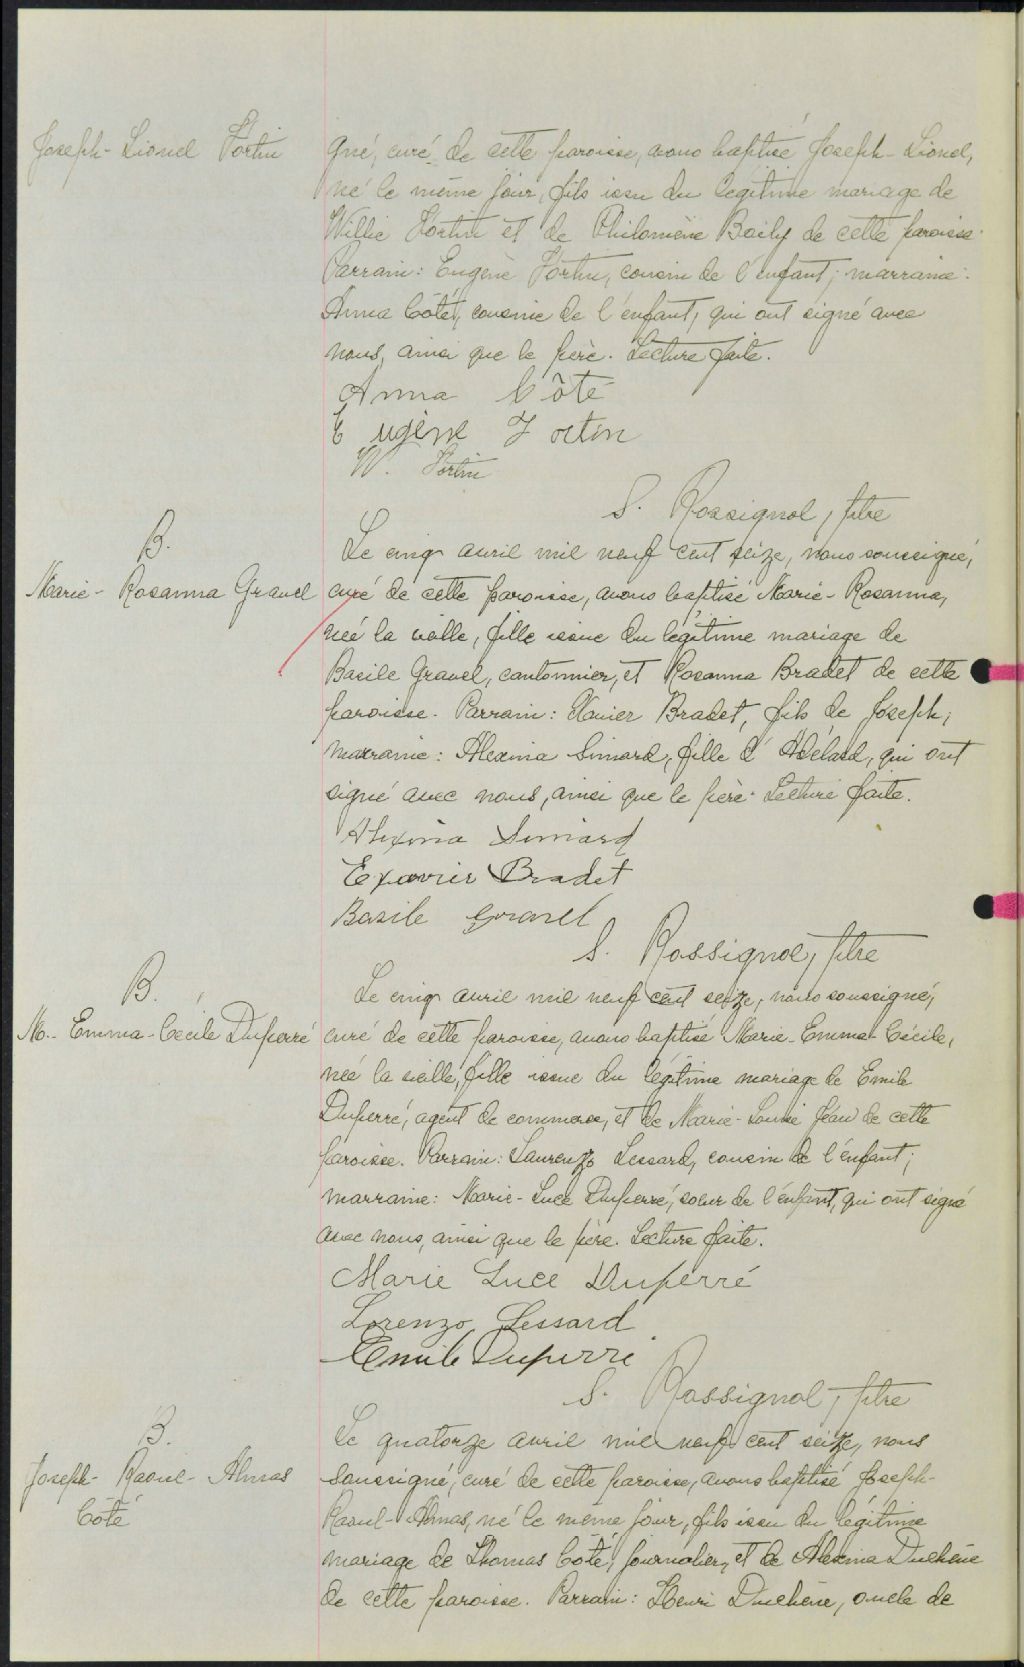 Joseph-Lionel Fortin
gné, curé de cette paroisse, avons baptisé Joseph-Lionel,
né le même jour, fils issu du légitime mariage de
Willie Fortin et de Philomène Baily de cette paroisse.
Parrain: Eugène Fortin, cousin de l'enfant; marraine:
Anna Côté, cousine de l'enfant, qui ont signé avec
nous, ainsi que le père. Lecture faite.
Anna Côté
Eugène Fortin
W. Fortin
S. Rossignol, ptre
B.
Marie-Rosanna Gravel
Le cinq avril mil neuf cent seize, nous soussigné,
curé de cette paroisse, avons baptisé Marie-Rosanna,
née la veille, fille issue du légitime mariage de
Basile Gravel, cantonnier, et Rosanna Bradet de cette
paroisse. Parrain: Xavier Bradet, fils de Joseph;
marraine: Alexina Simard, fille d'Adélard, qui ont
signé avec nous, ainsi que le père. Lecture faite.
Alexina Simard
Exavier Bradet
Basile Gravel
S. Rossignol, ptre
B.
M.-Emma-Cécile Duperré
Le cinq avril mil neuf cent seize, nous soussigné,
curé de cette paroisse, avons baptisé Marie-Emma-Cécile,
née la veille, fille issue du légitime mariage de Emile
Duperré, agent de commerce, et de Marie-Louise Jean de cette
paroisse. Parrain: Laurenzo Lessard, cousin de l'enfant;
marraine: Marie-Luce Duperré, soeur de l'enfant, qui ont signé
avec nous, ainsi que le père. Lecture faite.
Marie Luce Duperré
Lorenzo Lessard
Emile Duperré
S. Rossignol, ptre
B.
Joseph-Raoul-Almas
Côté
Le quatorze avril mil neuf cent seize, nous
soussigné, curé de cette paroisse, avons baptisé Joseph-
Raoul-Almas, né le même jour, fils issu du légitime
mariage de Thomas Côté, journalier, et de Alexina Duchêne
de cette paroisse. Parrain: Henri Duchêne, oncle de